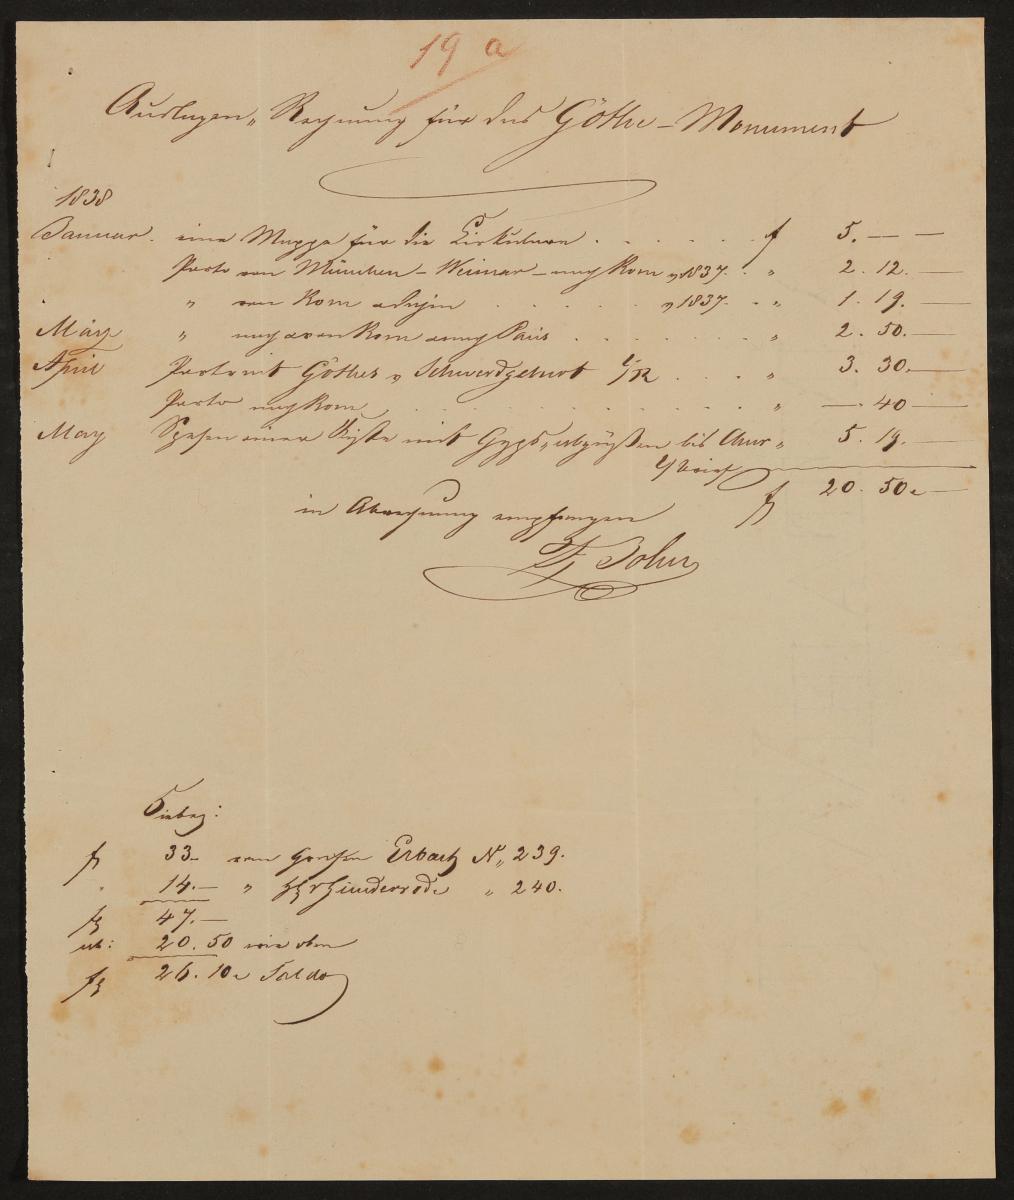 19 a
Auslagen„ Rechnung für das Göthe-Monument
1838
Januar. eine Mappe für die Cirkulare . . . . . . f 5. — —
Porto von München - Weimar - nach Rom v 1837. . „ 2. 12. —
„ von Rom v 1837. . „ 1. 19. —
März „ nach & von Rom & nach Paris . . . . . . . „ 2. 50. —
April Portrait Göthes v Schwerdgeburt . . . „ 3. 30. —
Porto nach Rom . . . . . . . . . „ — 40 —
May Spesen einer Kiste mit Gyps„abgüßen bis Chur „ 5. 19. —
f 20. 50 —
in Abrechnung empfangen
Bohn
Einbez:
f 33 — von Grafen Erbach N„ 239.
„ 14. — „ Günderrode „ 240.
f 47. —
ab: 20. 50 wie oben
f 26. 10 Saldo